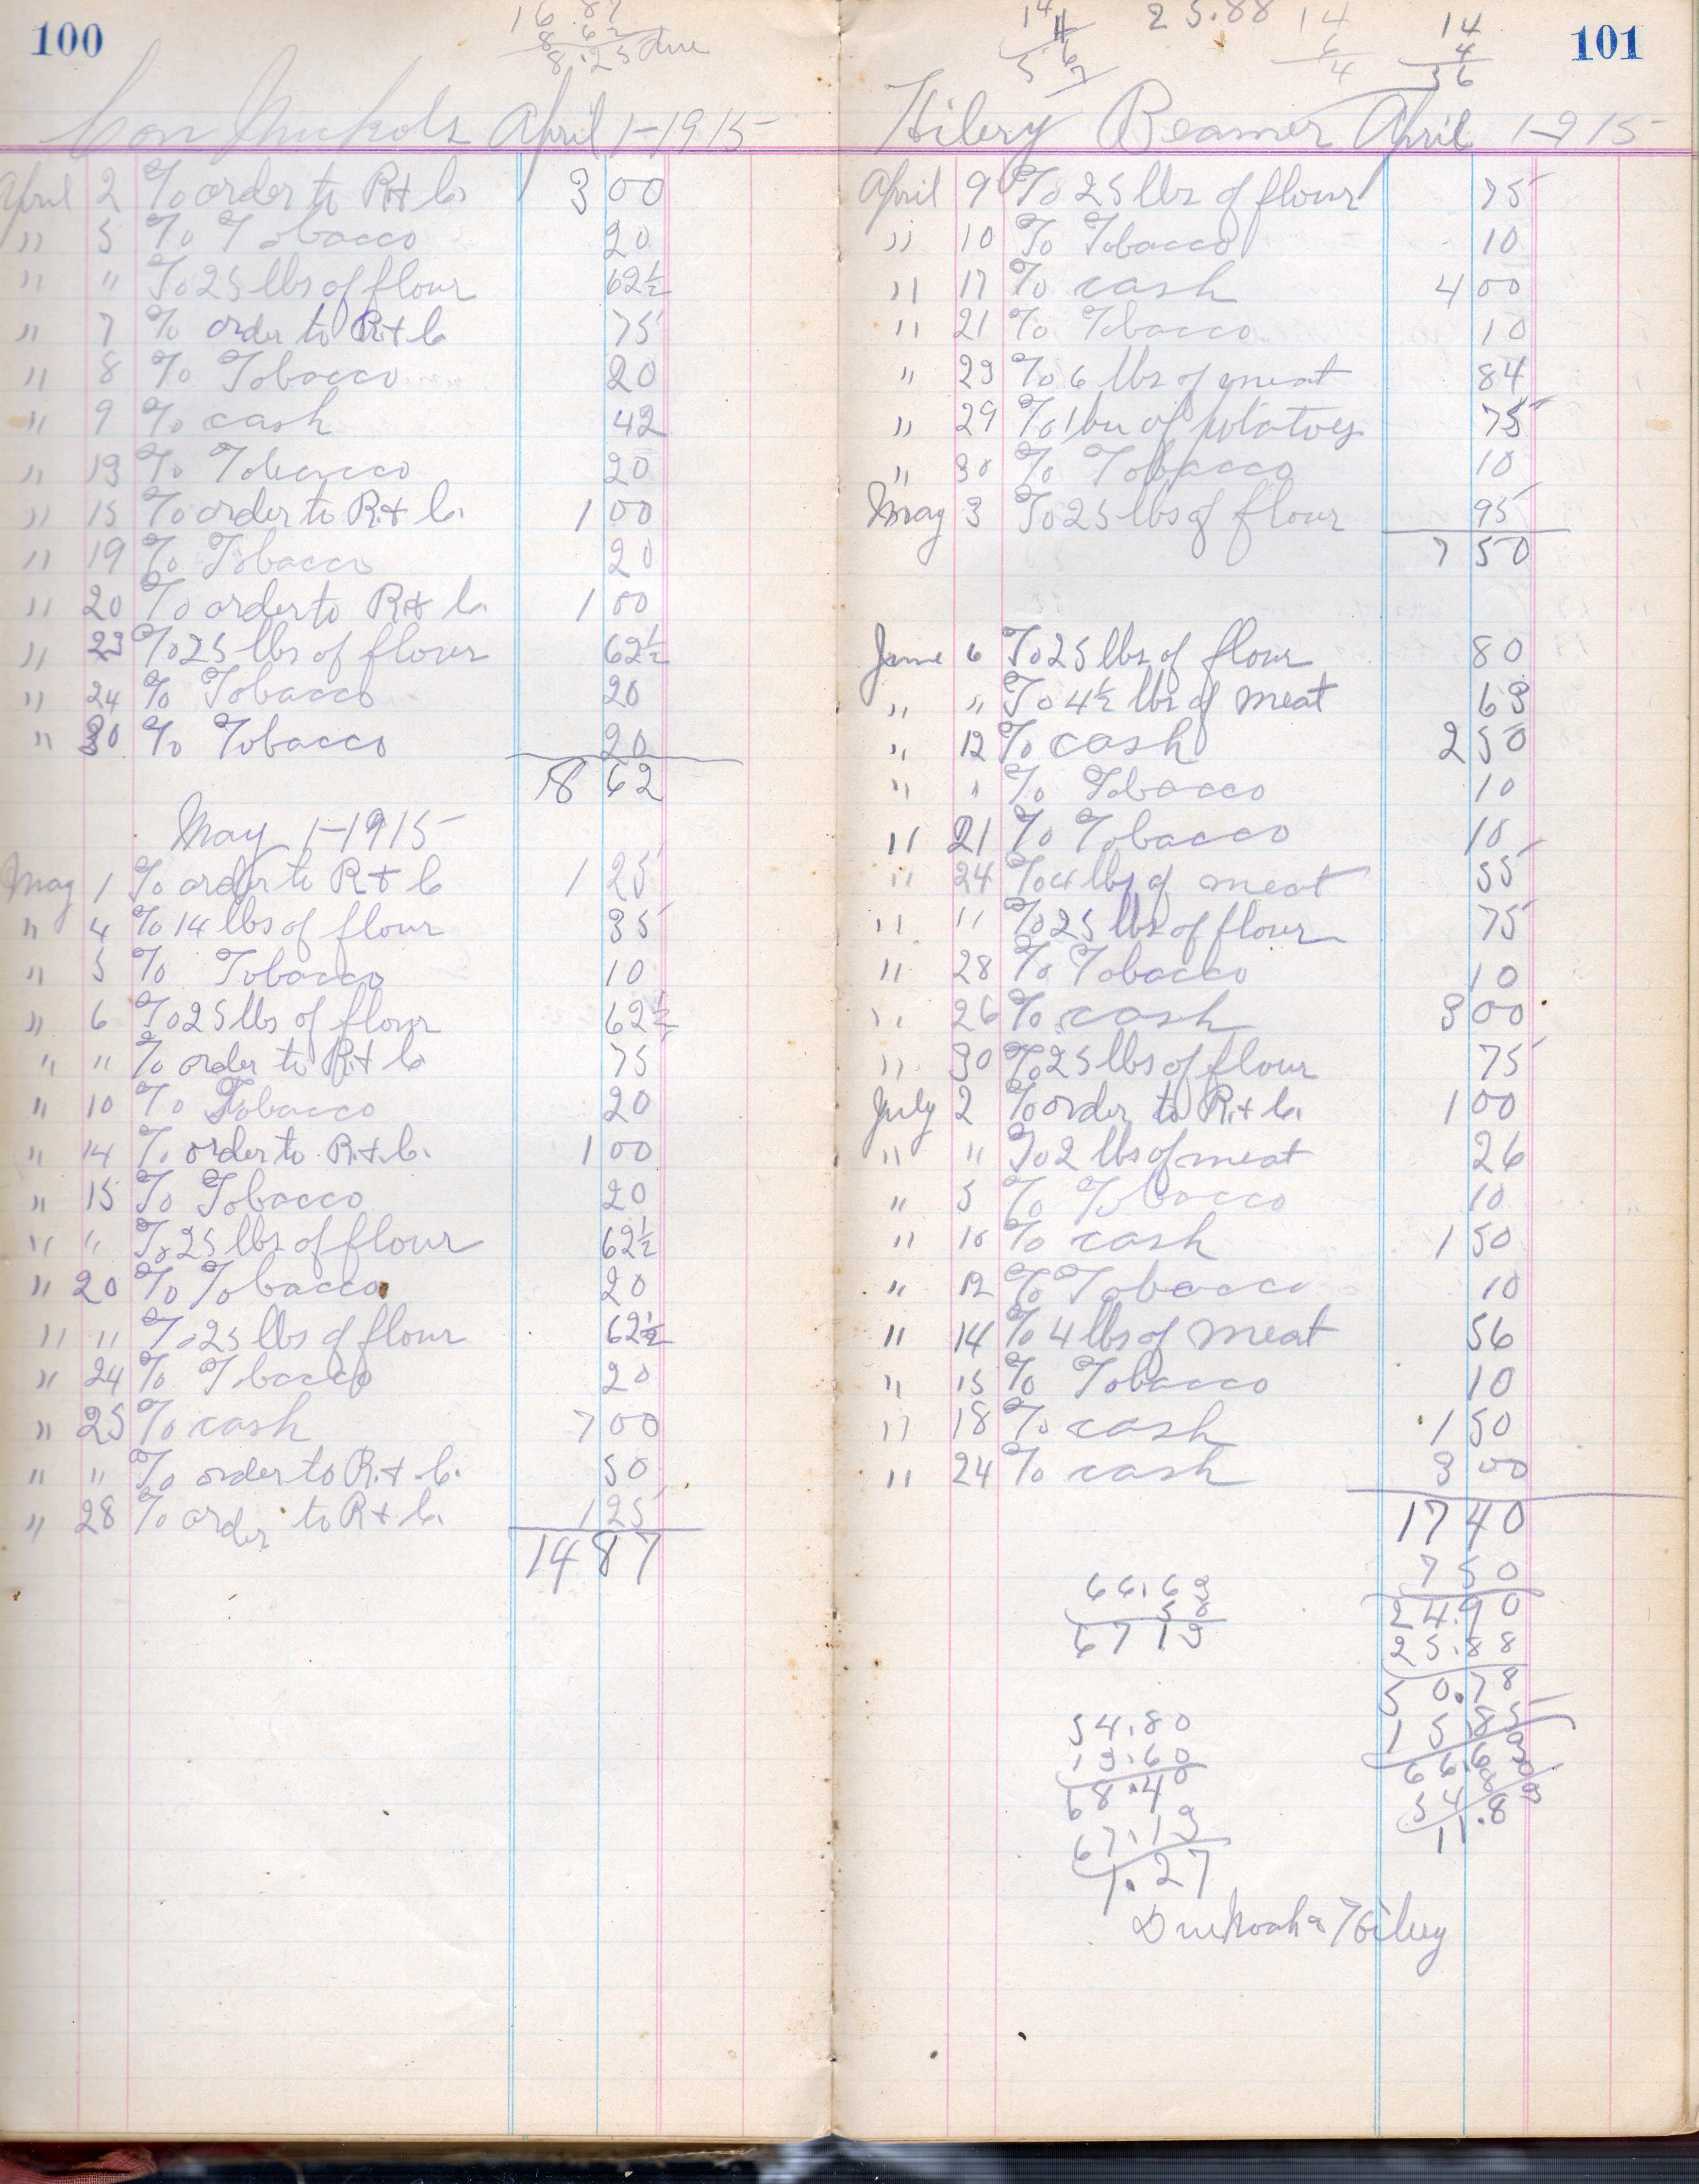 100
16.87
8.62
8.25 due
Con Nuckols April 1-1915
April 2 To order to R.+ Co. 3 00
" 5 To Tobacco 20
" " To 25 lbs of flour 62½
" 7 To order to R+ Co 75
" 8 To Tobacco 20
" 9 To cash 42
" 13 To Tobacco 20
" 15 To order to R.+ Co. 1 00
" 19 To Tobacco 20
" 20 To order to R+ Co. 1 00
" 23 To 25 lbs of flour 62½
" 24 To Tobacco 20
" 30 To Tobacco 20
8 62
May 1-1915
May 1 To order to R+ Co 1 25
" 4 To 14 lbs of flour 35
" 5 To Tobacco 10
" 6 To 25 lbs of flour 62½
" " To order to R+ Co 75
" 10 To Tobacco 20
" 14 To order to R.+ Co. 1 00
" 15 To Tobacco 20
" " To 25 lbs of flour 62½
" 20 To Tobacco 20
" " To 25 lbs of flour 62½
" 24 To Tobacco 20
" 25 To cash 7 00
" " To order to R.+ Co. 50
" 28 To order to R+ Co. 1 25
14 87
101
25.88
14
4
56
Hilery Beamer April 1-915
April 9 To 25 lbs of flour 75
" 10 To Tobacco 10
" 17 To cash 4 00
" 21 To Tobacco 10
" 23 To 6 lbs of meat 84
" 29 To 1 bu of potatoes 75
" 30 To Tobacco 10
May 3 To 25 lbs of flour 95
7 50
June 6 To 25 lbs of flour 80
" " To 4½ lbs of meat 63
" 12 To cash 2 50
" " To Tobacco 10
" 21 To Tobacco 10
" 24 To 4 lbs of meat 55
" " To 25 lbs of flour 75
" 28 To Tobacco 10
" 26 To cash 3 00
" 30 To 25 lbs of flour 75
July 2 To order to R.+ Co. 1 00
" " To 2 lbs of meat 26
" 5 To Tobacco 10
" 10 To cash 1 50
" 12 To Tobacco 10
" 14 To 4 lbs of meat 56
" 15 To Tobacco 10
" 18 To cash 1 50
" 24 To cash 3 00
17 40
7 50
24.90
25.88
50.78
15 85
66.63
54.8
11.8
66.63
50
6713
54.80
13.60
68.40
67.13
1.27
Due Noah & Hilery